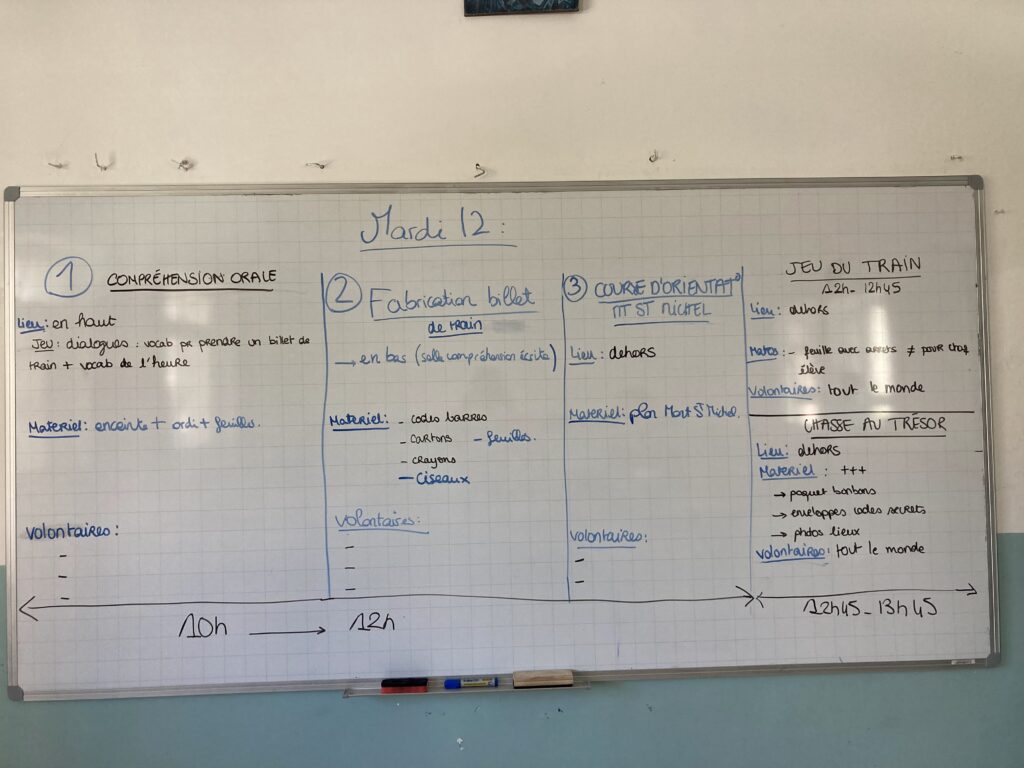 Mardi 12 :
1 COMPRÉHENSION ORALE
Lieu : en haut
JEU : dialogues : vocab pr prendre un billet de
train + vocab de l'heure
Materiel : enceinte + ordi + feuilles.
Volontaires :
-
-
-
2 Fabrication billet
de train
→ en bas (salle compréhension écrite)
Materiel : - codes barres
- cartons - feuilles.
- crayons
- ciseaux
Volontaires :
-
-
-
3 COURSE D'ORIENTAT°
MT ST MICHEL
Lieu : dehors
Materiel : plan Mont St Michel.
Volontaires :
-
-
-
10h → 12h
JEU DU TRAIN
12h - 12h45
Lieu : dehors
Matos : - feuille avec arrets ≠ pour chaq
élève
Volontaires : tout le monde
CHASSE AU TRÉSOR
Lieu : dehors
Materiel : +++
→ paquet bonbons
→ enveloppes codes secrets
→ photos lieux
Volontaires : tout le monde
12h45 - 13h45